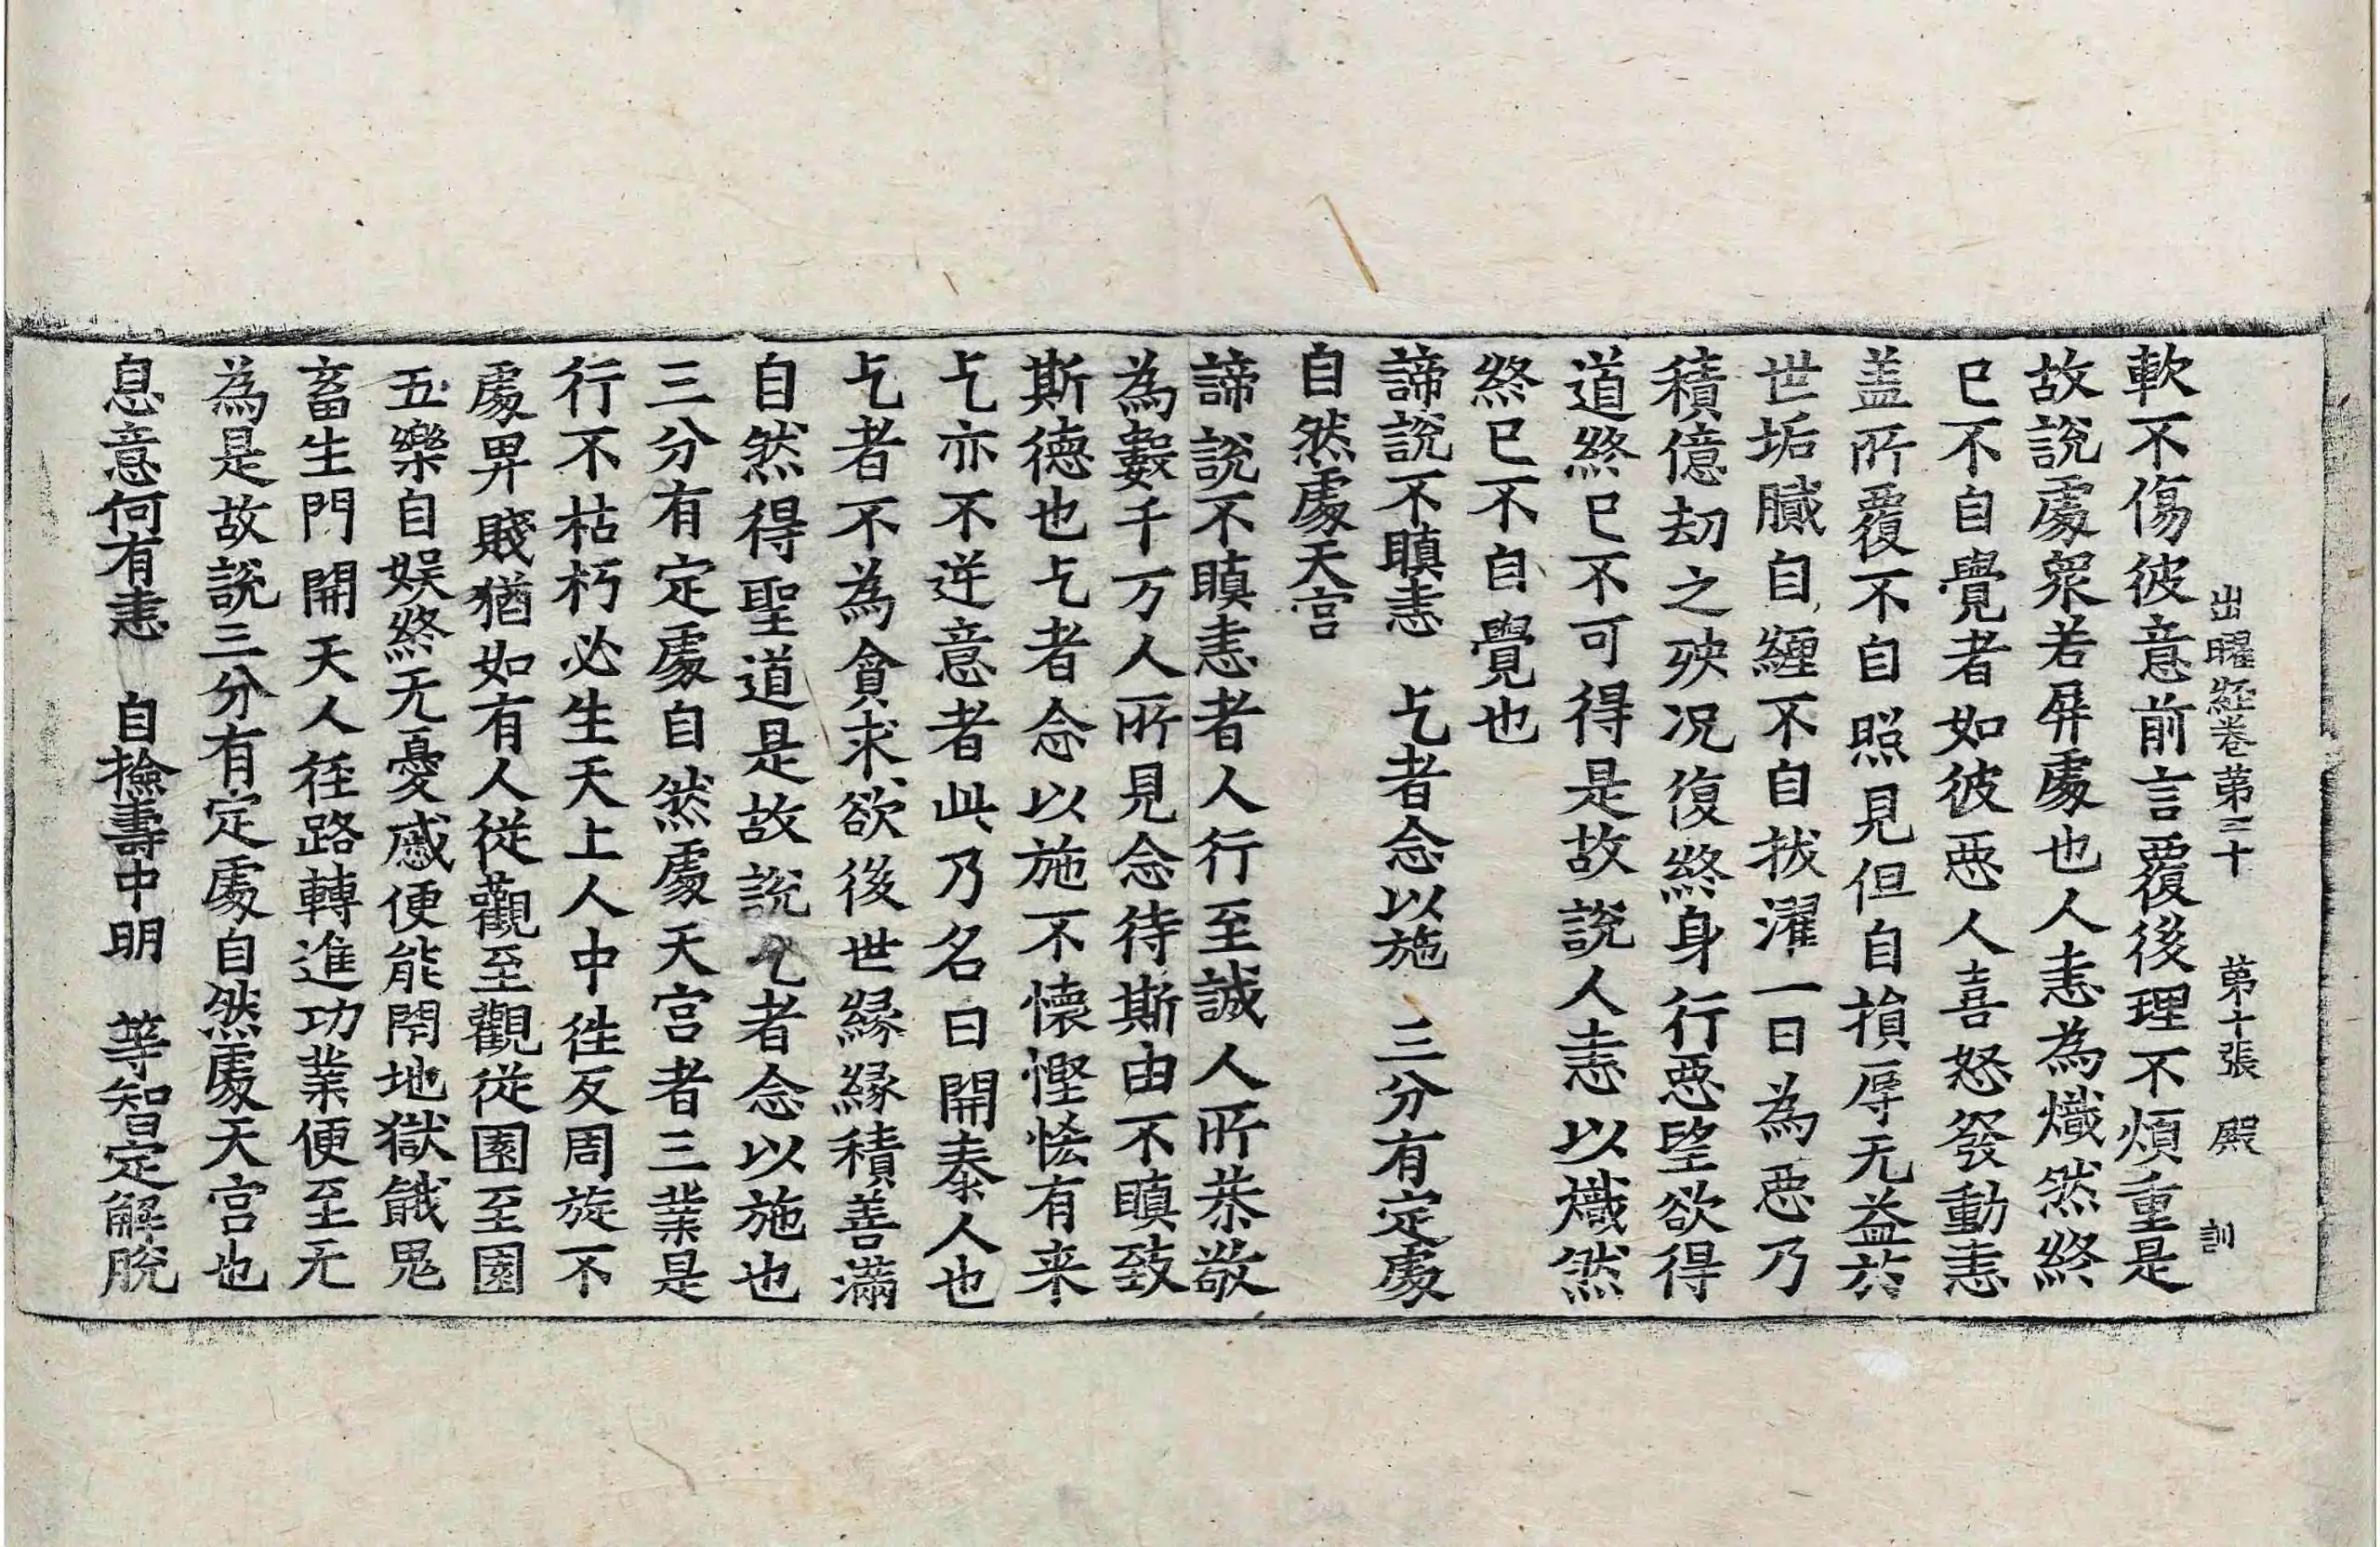 出曜經卷第二十 第十張 殿 訓
軟不傷彼意前言覆後理不煩重是
故說處衆若屏處也人恚為熾然終
已不自覺者如彼惡人喜怒發動恚
盖所覆不自照見但自損辱无益於
世垢膩自纏不自拔濯一日為惡乃
積億劫之殃况復終身行惡望欲得
道終已不可得是故說人恚以熾然
終已不自覺也
諦說不瞋恚 乞者念以施 三分有定處
自然處天宮
諦說不瞋恚者人行至誠人所恭敬
為數千万人所見念待斯由不瞋致
斯德也乞者念以施不懷慳悋有来
乞亦不逆意者此乃名曰開泰人也
乞者不為貪求欲後世緣緣積善滿
自然得聖道是故說乞者念以施也
三分有定處自然處天宮者三業是
行不枯朽必生天上人中徃反周旋不
處畀賤猶如有人從觀至觀從園至園
五樂自娱終无憂慼便能閇地獄餓鬼
畜生門開天人徑路轉進功業便至无
為是故說三分有定處自然處天宮也
息意何有恚 自撿壽中明 等智定解脫